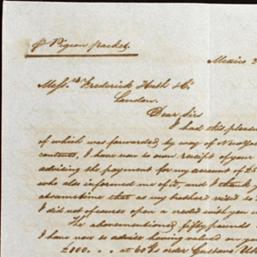 p Pigeon packet.
Mexico
Mess.rs Frederick Huth & Co.
London.
Dear Sirs
I had this pleasure
of which was forwarded by way of
contents, I have now to own receipt of your
advising the payment for my account of £5
who also informed me of it, and I thank y
that as my brother
I did not of course open a credit with you
The abovementioned fifty pounds
I have now to advise having valued on you
£100 . . . at 60 d/ order